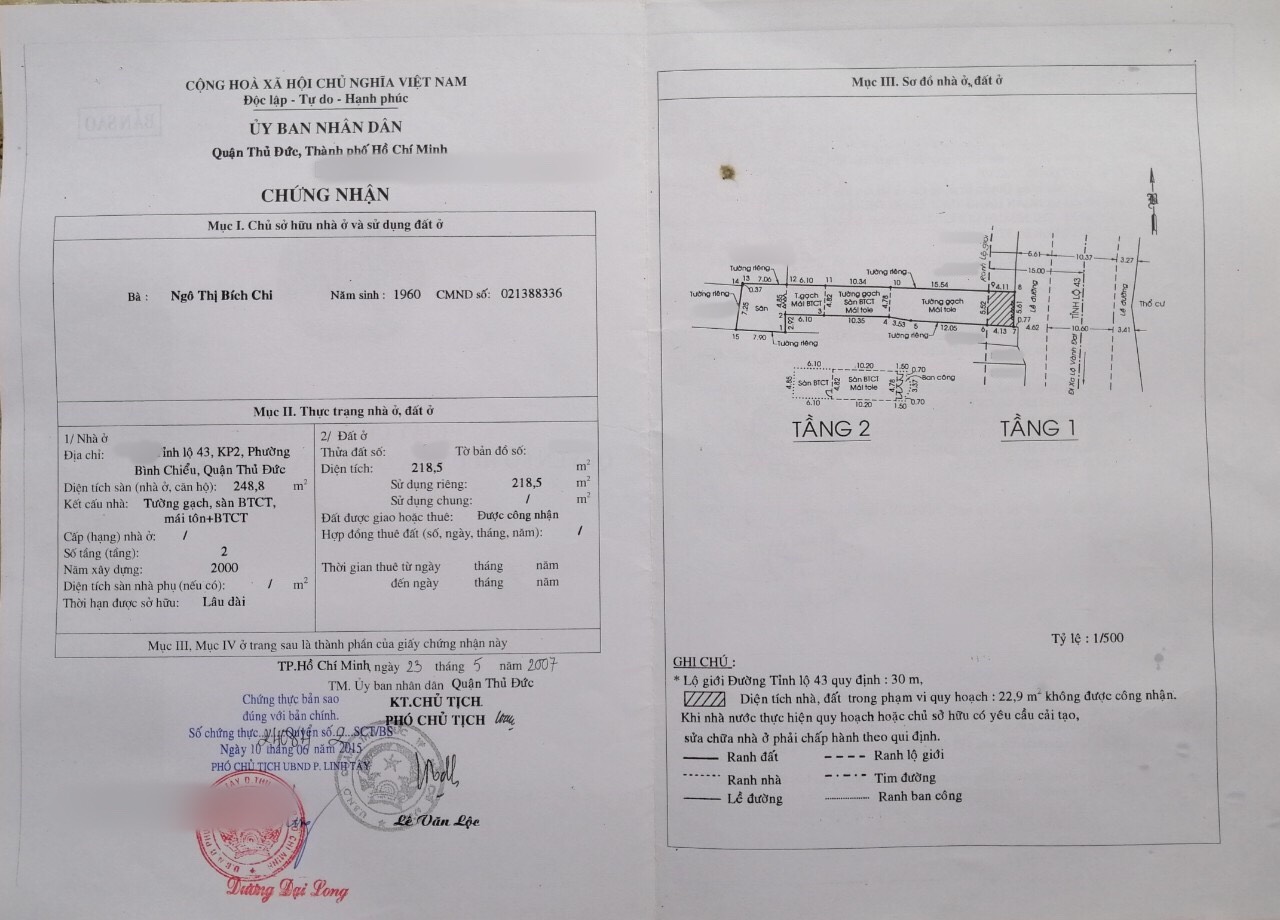 CỘNG HOÀ XÃ HỘI CHỦ NGHĨA VIỆT NAM
Độc lập - Tự do - Hạnh phúc
BẢN SAO
ỦY BAN NHÂN DÂN
Quận Thủ Đức, Thành phố Hồ Chí Minh
CHỨNG NHẬN
Mục I. Chủ sở hữu nhà ở và sử dụng đất ở
Bà : Ngô Thị Bích Chi Năm sinh : 1960 CMND số: 021388336
Mục II. Thực trạng nhà ở, đất ở
1/ Nhà ở
Địa chỉ: ỉnh lộ 43, KP2, Phường
Bình Chiểu, Quận Thủ Đức
Diện tích sàn (nhà ở, căn hộ): 248,8 m²
Kết cấu nhà: Tường gạch, sàn BTCT,
mái tôn+BTCT
Cấp (hạng) nhà ở: /
Số tầng (tầng): 2
Năm xây dựng: 2000
Diện tích sàn nhà phụ (nếu có): / m²
Thời hạn được sở hữu: Lâu dài
2/ Đất ở
Thửa đất số: Tờ bản đồ số:
Diện tích: 218,5 m²
Sử dụng riêng: 218,5 m²
Sử dụng chung: / m²
Đất được giao hoặc thuê: Được công nhận
Hợp đồng thuê đất (số, ngày, tháng, năm): /
Thời gian thuê từ ngày tháng năm
đến ngày tháng năm
Mục III, Mục IV ở trang sau là thành phần của giấy chứng nhận này
TP.Hồ Chí Minh, ngày 23 tháng 5 năm 2007
TM. Ủy ban nhân dân Quận Thủ Đức
KT.CHỦ TỊCH
PHÓ CHỦ TỊCH
Lê Văn Lộc
Chứng thực bản sao
đúng với bản chính.
Số chứng thực Quyển số 2 SCT/BS
Ngày 10 tháng 06 năm 2015
PHÓ CHỦ TỊCH UBND P. LINH TÂY
Dương Đại Long
Mục III. Sơ đồ nhà ở, đất ở
Tường riêng
Tường riêng
14 13 7.06 12 6.10 11 10.34 10 15.54 9 4.11 8
Tường riêng
0.37
7.25
Sân
4.85
T.gạch
Mái BTCT
4.82
Tường gạch
Sàn BTCT
Mái tole
4.78
Tường gạch
Mái tole
5.52
5.61
0.77
2
2.92
6.10
3
10.35
4
3.53
5
12.05
6
4.13
7
4.62
15
7.90
1
Tường riêng
Tường riêng
Ranh Lộ Giới
5.61
10.37
3.27
15.00
Lề đường
TỈNH LỘ 43
Lề đường
Thổ cư
10.60
3.41
Đi Xa Lộ Vành Đai
6.10
10.20
1.50
0.70
4.85
Sàn BTCT
4.82
Sàn BTCT
Mái tole
4.78
3.37
Ban công
6.10
10.20
1.50
0.70
TẦNG 2
TẦNG 1
Tỷ lệ : 1/500
GHI CHÚ :
* Lộ giới Đường Tỉnh lộ 43 quy định : 30 m,
Diện tích nhà, đất trong phạm vi quy hoạch : 22,9 m² không được công nhận.
Khi nhà nước thực hiện quy hoạch hoặc chủ sở hữu có yêu cầu cải tạo,
sửa chữa nhà ở phải chấp hành theo qui định.
Ranh đất Ranh lộ giới
Ranh nhà Tim đường
Lề đường Ranh ban công